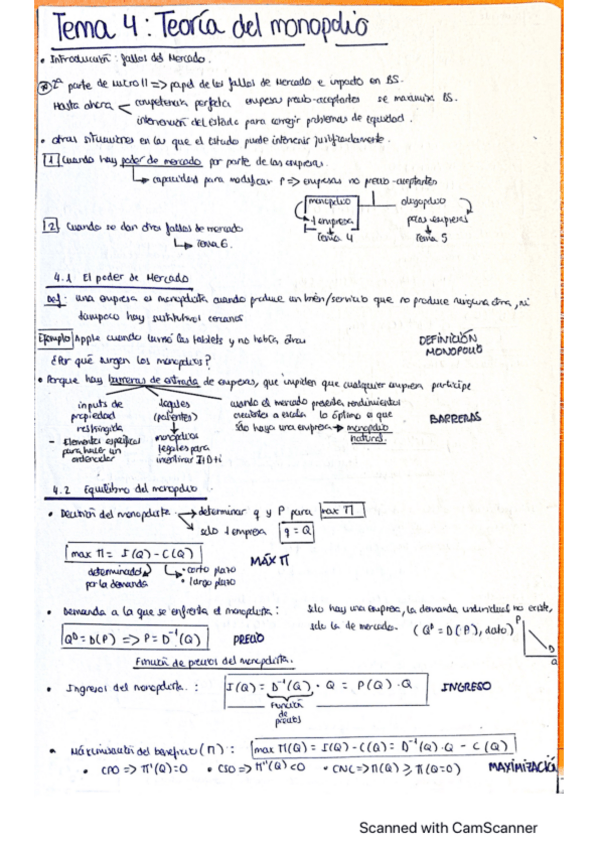 Tema 4: Teoría del monopolio
• Introducción: fallos del Mercado.
* 2ª parte de Micro II => papel de los fallos de Mercado e impacto en BS.
Hasta ahora competencia perfecta empresas precio-aceptantes se maximiza BS.
intervención del Estado para corregir problemas de equidad.
• Otras situaciones en las que el Estado puede intervenir justificadamente.
1 Cuando hay poder de mercado por parte de las empresas.
capacidad para modificar P => empresas no precio-aceptantes
monopolio oligopolio
1 empresa pocas empresas
Tema 4 Tema 5
2 Cuando se dan otros fallos de mercado
Tema 6.
4.1 El poder de Mercado
Def: una empresa es monopolista cuando produce un bien/servicio que no produce ninguna otra, ni
tampoco hay sustitutivos cercanos
Ejemplo Apple cuando lanzó las tablets y no había otras
DEFINICIÓN
MONOPOLIO
¿Por qué surgen los monopolios?
• Porque hay barreras de entrada de empresas, que impiden que cualquier empresa participe
inputs de propiedad restringida
- Elementos específicos para hacer un ordenador
legales (patentes)
monopolios legales para incentivar I+D+i
cuando el mercado presenta rendimientos
crecientes a escala lo óptimo es que
sólo haya una empresa → monopolio
natural.
BARRERAS
4.2 Equilibrio del monopolio
• Decisión del monopolista → determinar q y P para max Π
solo 1 empresa q = Q
max Π = I(Q) - C(Q)
MÁX Π
determinados por la demanda
• corto plazo
• largo plazo
• Demanda a la que se enfrenta el monopolista: Solo hay una empresa, la demanda individual no existe,
solo la de mercado. (Qᴰ = D(P), dato)
P
D
Q
Qᴰ = D(P) => P = D⁻¹(Q) PRECIO
Función de precios del monopolista.
• Ingresos del monopolista: I(Q) = D⁻¹(Q) · Q = P(Q) · Q INGRESO
Función
de
precios
• Maximización del beneficio (Π): max Π(Q) = I(Q) - C(Q) = D⁻¹(Q) · Q - C(Q)
• CPO => Π'(Q) = 0 • CSO => Π''(Q) < 0 • CNC => Π(Q) ≥ Π(Q=0) MAXIMIZACIÓ
Scanned with CamScanner